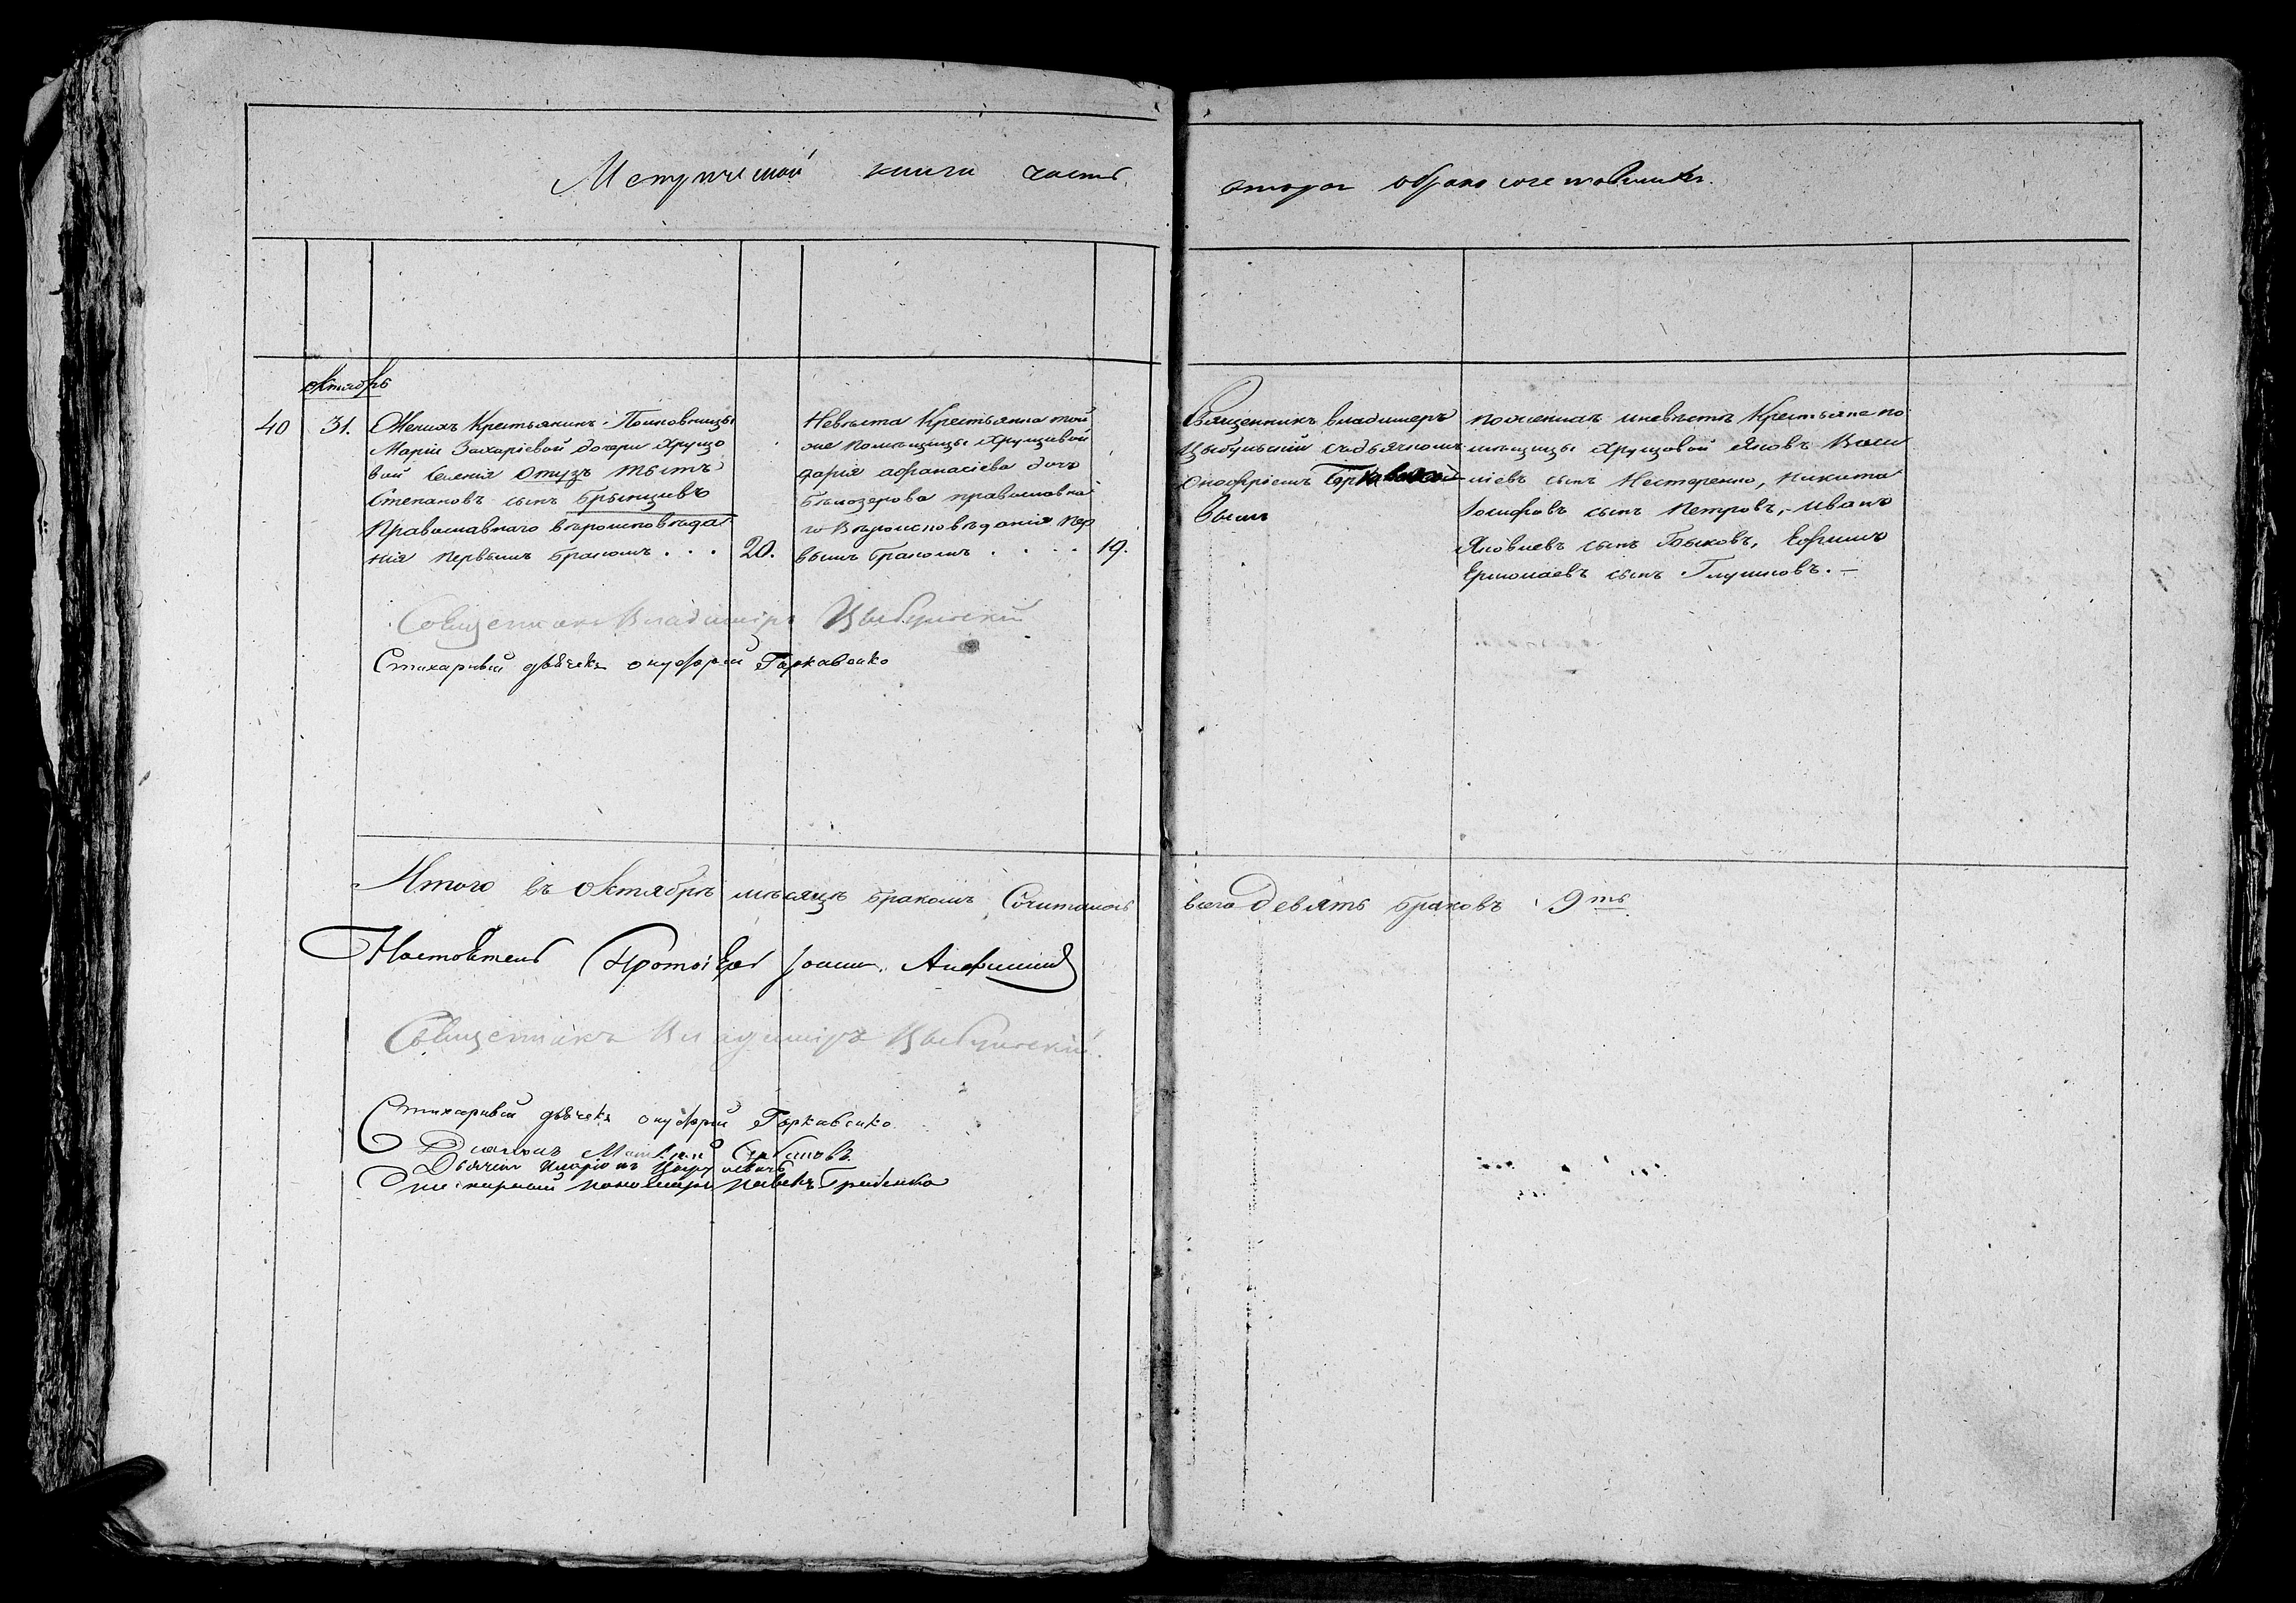 Метрической книги часть вторая о бракосочетавшихся.
октябрь
40 31. Женихъ Крестьянинъ Полковницы
Маріи Захаріевой дочери Хрущо
вой Селенія Отузъ Мыстъ
Степановъ сынъ Брынцивъ
Православнаго вѣроисповѣда
нія первымъ бракомъ . . . 20.
Невѣста Крестьянка той
же помѣщицы Хрущовой
дарія афанасіева дочь
Бѣлозерова православна
го Вѣроисповѣданія пер
вымъ бракомъ . . . . 19.
Священникъ владимеръ
Цыбульскій съ дьячкомъ
Онофріемъ
вымъ
по женихѣ и невѣстѣ Крестьяне по
мѣщицы Хрущовой Яковъ Васи
ліевъ сынъ Нестеренко, Никита
Іосифовъ сынъ Петровъ, Иванъ
Яковлевъ сынъ Быковъ, Ефимъ
Ермолаевъ сынъ Глушковъ. —
Священникъ Владиміръ Цыбульскій
Стихарный дьячекъ онуфрій Гаркавенко
Итого въ октябрѣ мѣсяцѣ бракомъ Сочиталось всего Девять браковъ 9ть
Настоятель Протоіерей Іоаннъ
Священникъ Владиміръ Цыбульскій.
Стихарный дьячекъ онуфрій Гаркавенко
Діаконъ
Дьячекъ Иларіонъ
пономарь Павелъ Гребенко